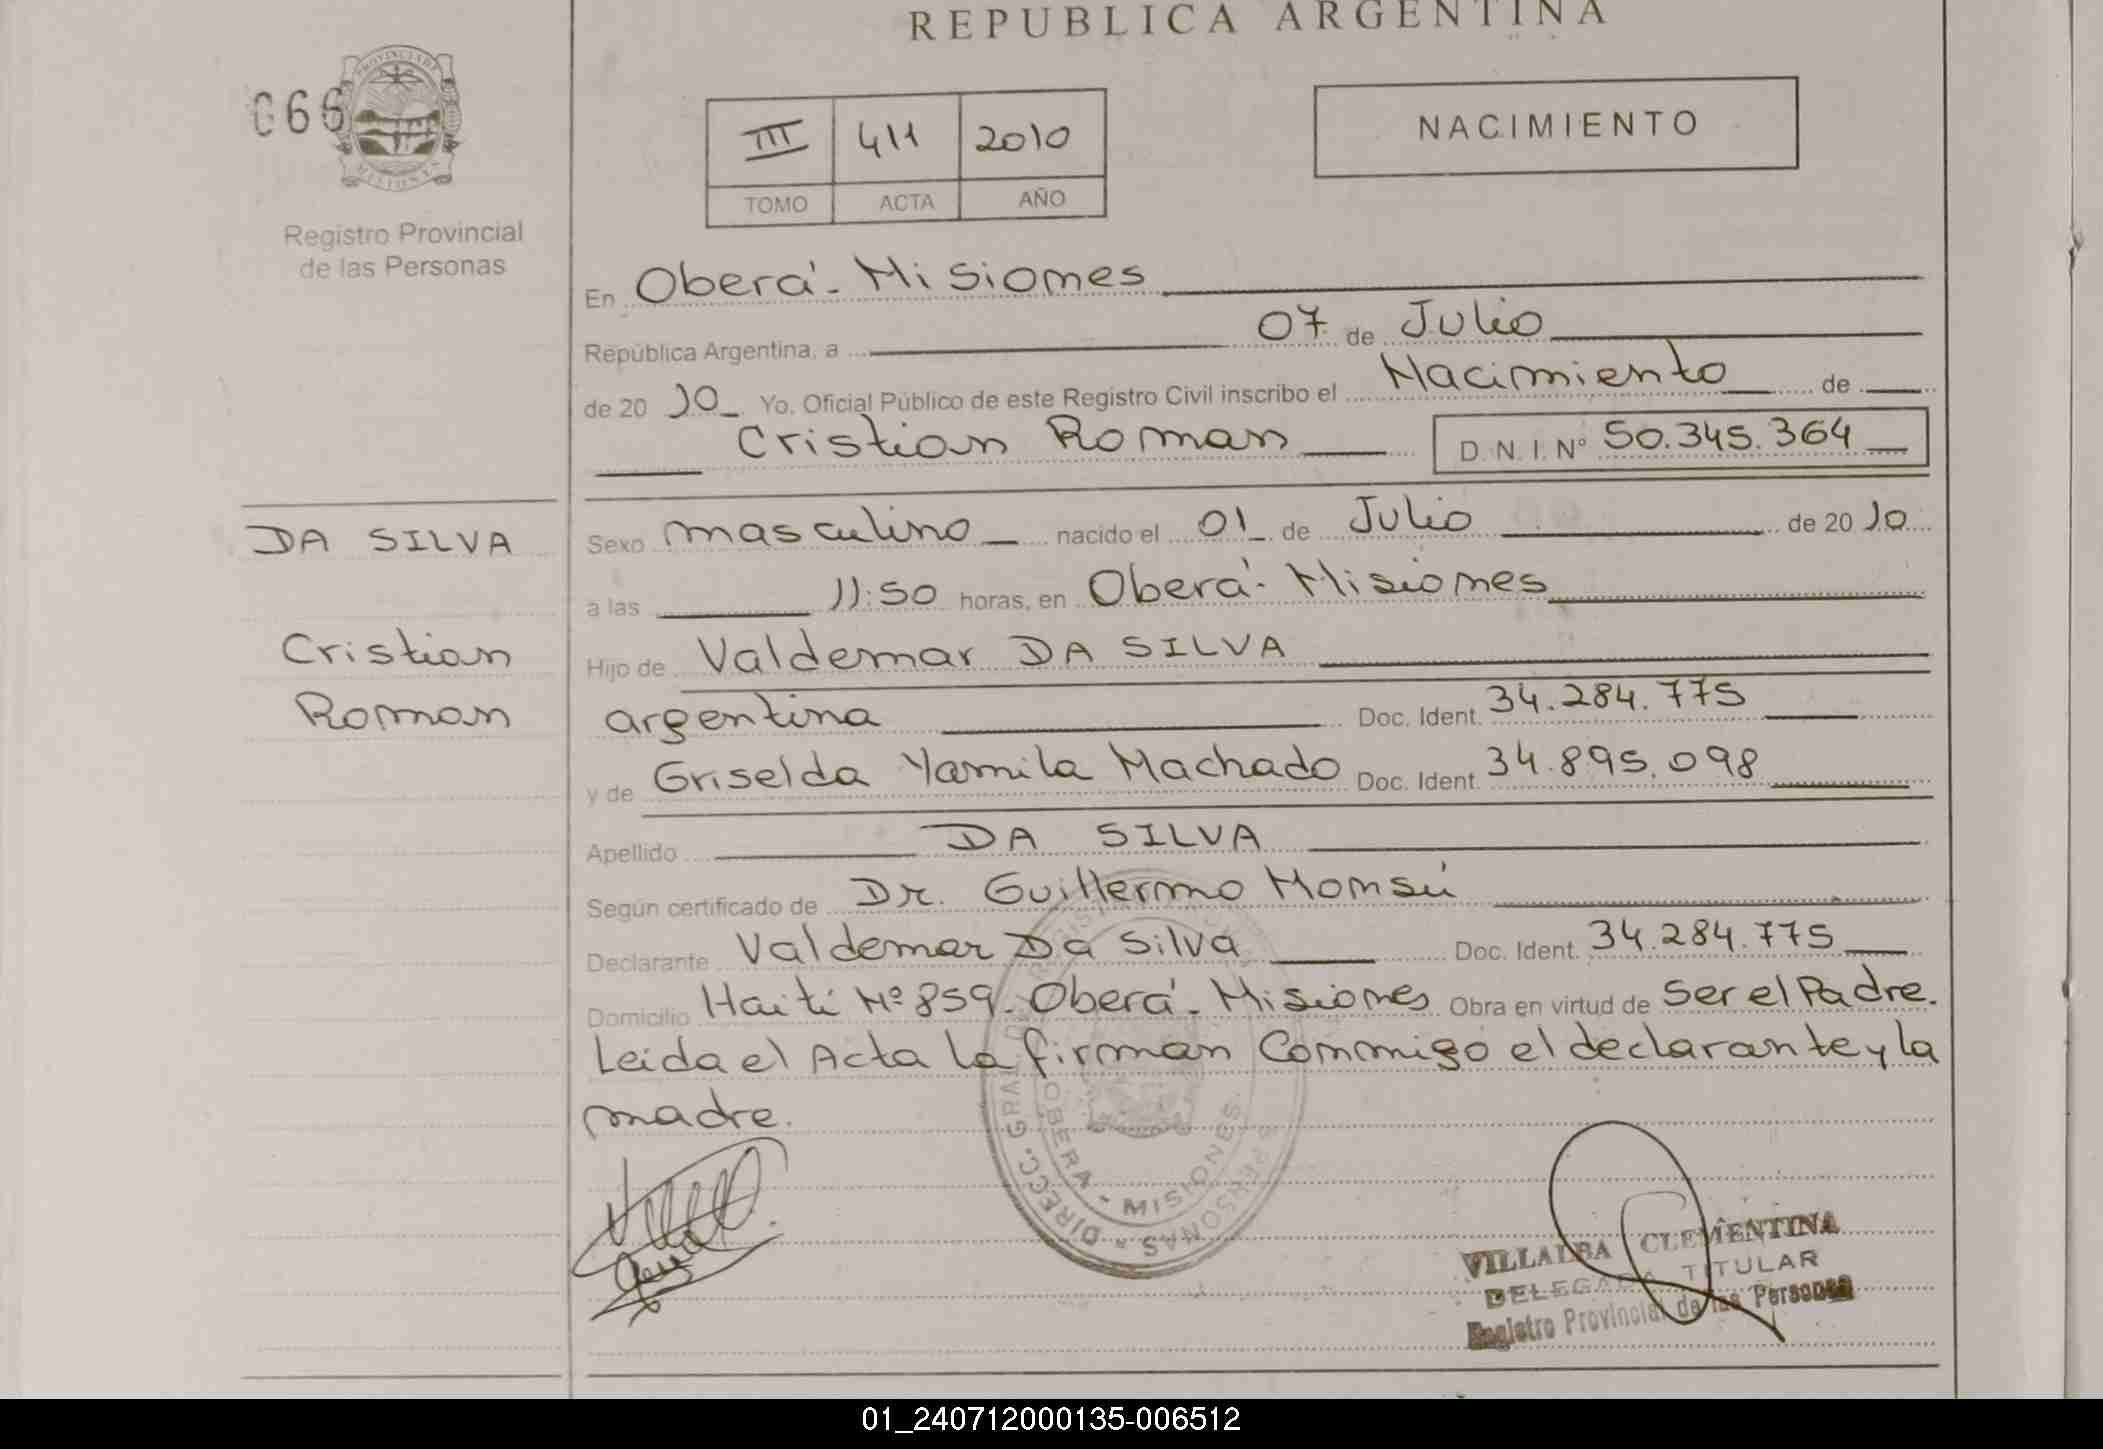 REPUBLICA ARGENTINA
066
PROVINCIA DE
MISIONES
Registro Provincial
de las Personas
III 411 2010
TOMO ACTA AÑO
NACIMIENTO
En Oberá - Misiones
República Argentina, a 07 de Julio
de 20 10 Yo, Oficial Público de este Registro Civil inscribo el Nacimiento de
Cristian Roman D.N.I.Nº 50.345.364
DA SILVA
Cristian
Roman
Sexo masculino nacido el 01 de Julio de 20 10
a las 11:50 horas, en Oberá - Misiones
Hijo de Valdemar DA SILVA
argentina Doc. Ident. 34.284.775
y de Griselda Yamila Machado Doc. Ident. 34.895.098
Apellido DA SILVA
Según certificado de Dr. Guillermo
Declarante Valdemar Da Silva Doc. Ident. 34.284.775
Domicilio Haití Nº 859 - Oberá - Misiones Obra en virtud de Ser el Padre.
Leida el Acta la firman Conmigo el declarante y la
madre.
DIRECC. GRAL. DE PERSONAS
OBERA - MISIONES
VILLALBA CLEMENTINA
DELEGADA TITULAR
Registro Provincial de las Personas
01_240712000135-006512